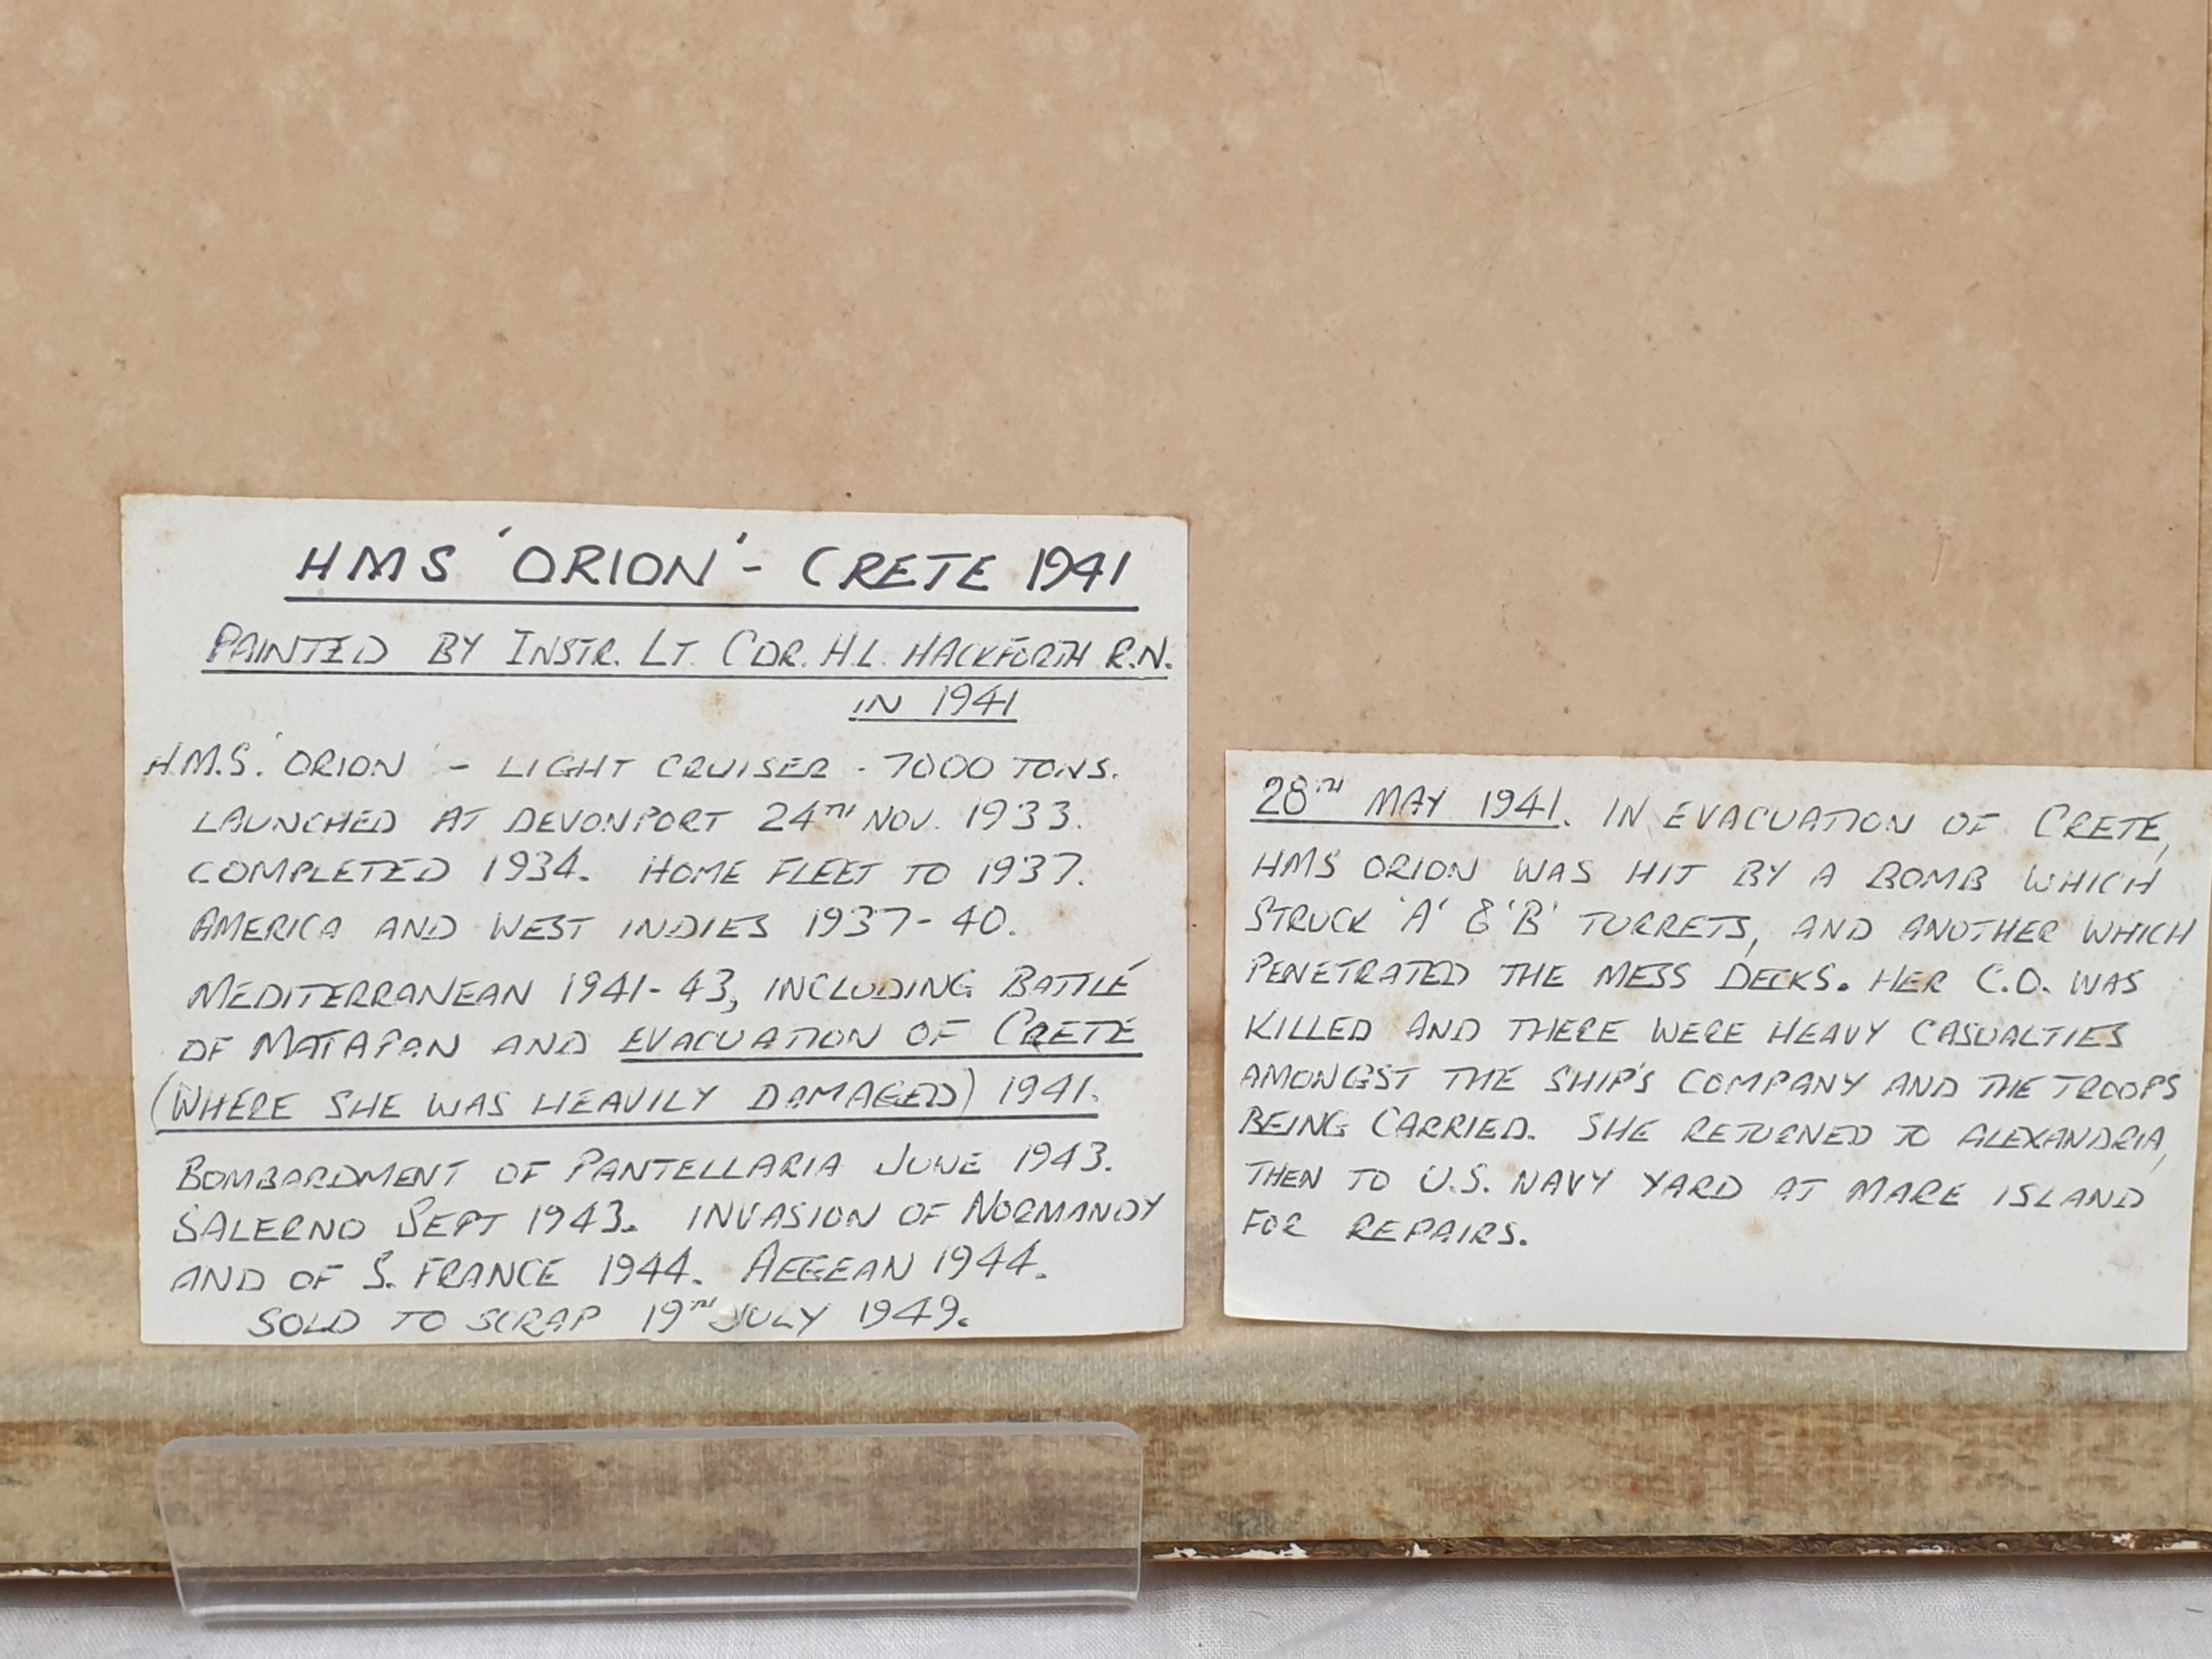 HMS 'ORION' - CRETE 1941
PAINTED BY INSTR. LT. CDR. H.L. HACKFORTH R.N.
IN 1941
H.M.S. 'ORION' - LIGHT CRUISER - 7000 TONS.
LAUNCHED AT DEVONPORT 24TH NOV. 1933.
COMPLETED 1934. HOME FLEET TO 1937.
AMERICA AND WEST INDIES 1937-40.
MEDITERRANEAN 1941-43, INCLUDING BATTLE
OF MATAPAN AND EVACUATION OF CRETE
(WHERE SHE WAS HEAVILY DAMAGED) 1941.
BOMBARDMENT OF PANTELLARIA JUNE 1943.
SALERNO SEPT 1943. INVASION OF NORMANDY
AND OF S. FRANCE 1944. AEGEAN 1944.
SOLD TO SCRAP 19TH JULY 1949.
28TH MAY 1941. IN EVACUATION OF CRETE,
HMS ORION WAS HIT BY A BOMB WHICH
STRUCK 'A' & 'B' TURRETS, AND ANOTHER WHICH
PENETRATED THE MESS DECKS. HER C.O. WAS
KILLED AND THERE WERE HEAVY CASUALTIES
AMONGST THE SHIP'S COMPANY AND THE TROOPS
BEING CARRIED. SHE RETURNED TO ALEXANDRIA,
THEN TO U.S. NAVY YARD AT MARE ISLAND
FOR REPAIRS.